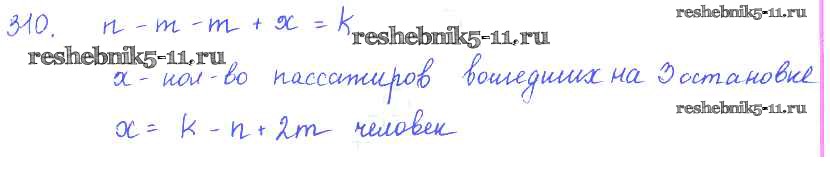 reshebnik5-11.ru
310. n - m - m + x = k
reshebnik5-11.ru
reshebnik5-11.ru
x - кол-во пассажиров вошедших на 3 остановке
reshebnik5-11.ru
x = k - n + 2m человек